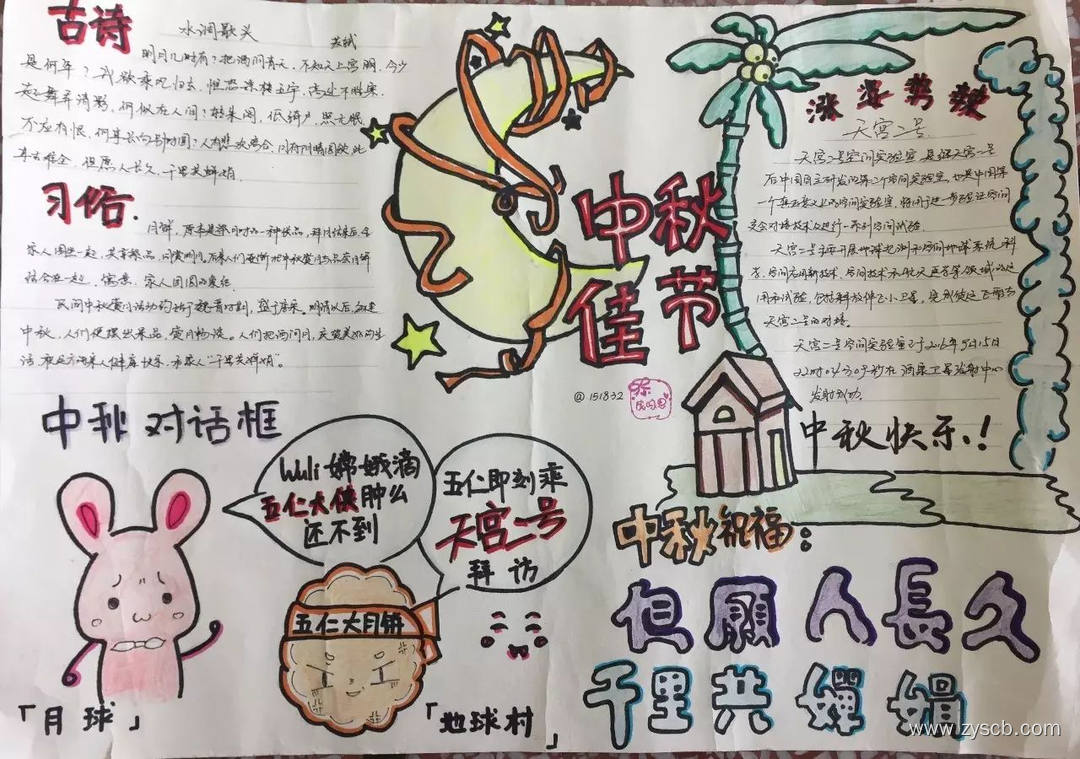 古诗
水调歌头
苏轼
明月几时有?把酒问青天。不知天上宫阙,今夕
是何年?我欲乘风归去,惟恐琼楼玉宇,高处不胜寒。
起舞弄清影,何似在人间?转朱阁,低绮户,照无眠
不应有恨,何事长向别时圆?人有悲欢离合,月有阴晴圆缺,此
事古难全。但愿人长久,千里共婵娟。
习俗.
月饼,原本是
家人围坐一起,共享祭品,同赏明月,后来人们逐渐把中秋赏月与品尝月饼
结合在一起,寓意家人团圆的象征
民间中秋赏月活动约始于魏晋时期,盛于唐宋。明清以后,每逢
中秋,人们便摆出果品,赏月畅谈。人们把酒问月,庆贺美好的生
活,祝远方的亲人健康快乐,和家人“千里共婵娟”。
中秋节
佳
@151832
涨姿势鞋
天宫二号
天宫二号空间实验室,是继天宫一号
后中国自主研发的第二个空间实验室,也是中国第
一个真正意义上的空间实验室,将用于进一步验证空间
交会对接技术及进行一系列空间试验.
天宫二号主要开展地球观测和空间地球系统科
学、空间应用新技术、空间技术和航天医学等领域的应
用和试验,包括释放伴飞小卫星,
天宫二号的对接。
天宫二号空间实验室已于2016年9月15日
22时04分0
在酒泉卫星发射中心
发射成功.
中秋快乐!
中秋对话框
Wuli 嫦娥滴
五仁大侠肿么
还不到
五仁即刻乘
天宫二号
拜访
五仁大月饼
「月球」
「地球村」
中秋祝福:
但願人長久
千里共嬋娟
www.zyscb.com